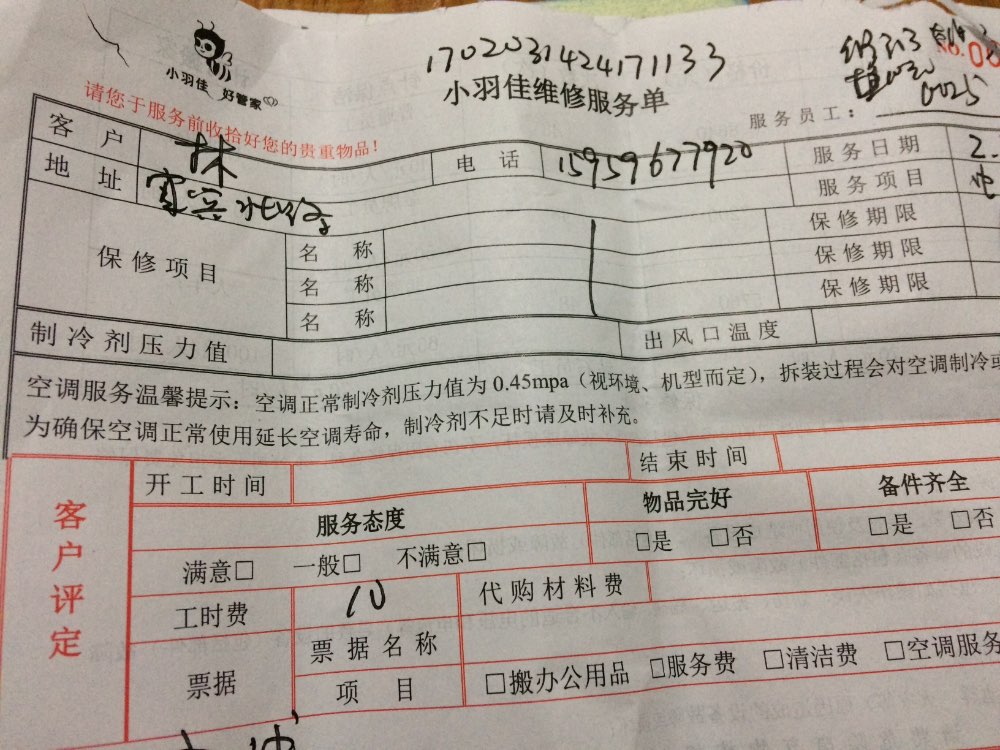 小羽佳 好管家
1702031424171133
小羽佳维修服务单
No.08
0025
请您于服务前收拾好您的贵重物品!
服务员工:
客户 林 电话 15959677920 服务日期 2.
地址 服务项目
保修项目 名称 保修期限
名称 保修期限
名称 保修期限
制冷剂压力值 出风口温度
空调服务温馨提示:空调正常制冷剂压力值为0.45mpa(视环境、机型而定),拆装过程会对空调制冷或
为确保空调正常使用延长空调寿命,制冷剂不足时请及时补充。
客户评定
开工时间 结束时间
服务态度 物品完好 备件齐全
满意□ 一般□ 不满意□ □是 □否 □是 □否
工时费 10 代购材料费
票据 票据名称
项目 □搬办公用品 □服务费 □清洁费 □空调服务